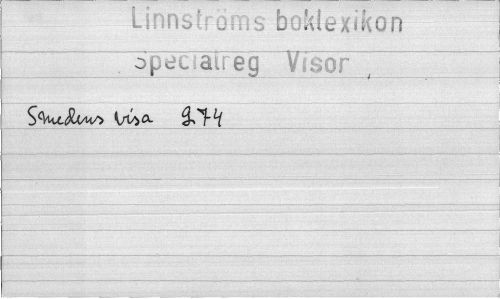 Linnströms boklexikon
Specialreg Visor
Smedens visa 974